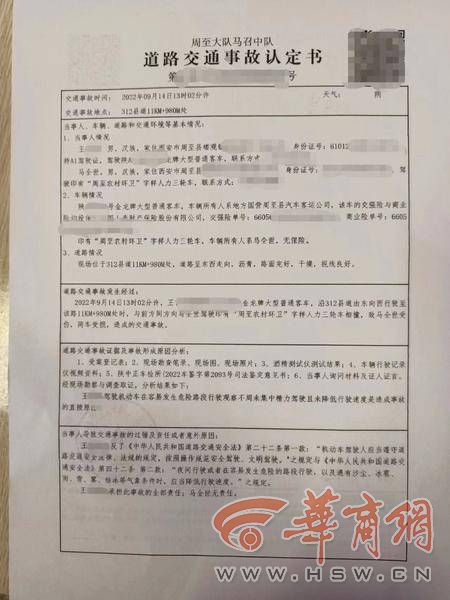 周至大队马召中队
道路交通事故认定书
第 号
交通事故时间: 2022年09月14日13时02分许 天气: 阴
交通事故地点: 312县道11KM+980M处
当事人、车辆、道路和交通环境等基本情况:
1、当事人情况
王 男,汉族,家住西安市周至县 身份证号: 61012
持A1驾驶证,驾驶陕 龙牌大型普通客车,联系方式
马全世,男,汉族,家住西安市周至县 身份证号:
驾驶印有“周至农村环卫”字样人力三轮车,联系方式:
2、车辆情况
陕 号金龙牌大型普通客车,车辆所有人系地方国营周至县汽车客运公司,该车的交强险与商业
险 财产保险股份有限公司,交强险单号: 66056 商业险单号: 6605
印有“周至农村环卫”字样人力三轮车,车辆所有人系马全世,无保险。
3、道路情况
现场位于312县道11KM+980M处,道路呈东西走向,沥青,路面完好,干燥,视线良好。
道路交通事故发生经过:
2022年9月14日13时02分,王 金龙牌大型普通客车,沿312县道由东向西行驶至
该路11KM+980M处时,与前方同方向马全世驾驶印有“周至农村环卫”字样人力三轮车相撞,致马全世受
伤,两车受损,造成的交通事故。
道路交通事故证据及事故形成原因分析:
1、受案登记表;2、现场勘查笔录、现场图、现场照片;3、酒精测试仪测试结果;4、车辆行驶记录
仪视频资料;5、陕中正车检所(2022)车鉴字第2093号司法鉴定意见书;6、当事人询问材料及证人证言。
经现场勘察与调查取证,分析结果如下:
王 驾驶机动车在容易发生危险路段行驶观察不周未集中精力驾驶且未降低行驶速度是造成事故
的直接原
当事人导致交通事故的过错及责任或者意外原因:
王 反了《中华人民共和国道路交通安全法》第二十二条第一款:“机动车驾驶人应当遵守道路
交通安全法律、法规的规定,按照操作规范安全驾驶、文明驾驶。”之规定与《中华人民共和国道路交
通安全法》第四十二条 第二款:“夜间行驶或者在容易发生危险的路段行驶,以及遇有沙尘、冰雹、
雨、雪、雾、结冰等气象条件时,应当降低行驶速度。”之规定。
王 承担此事故的全部责任;马全世无责任。
華商網
WWW.HSW.CN